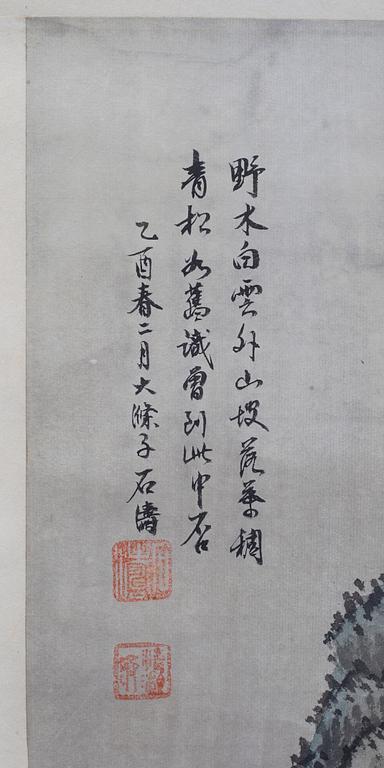 野水白雲外山坡落葉稠
青松如舊識曾到此中否
乙酉春二月大滌子石濤